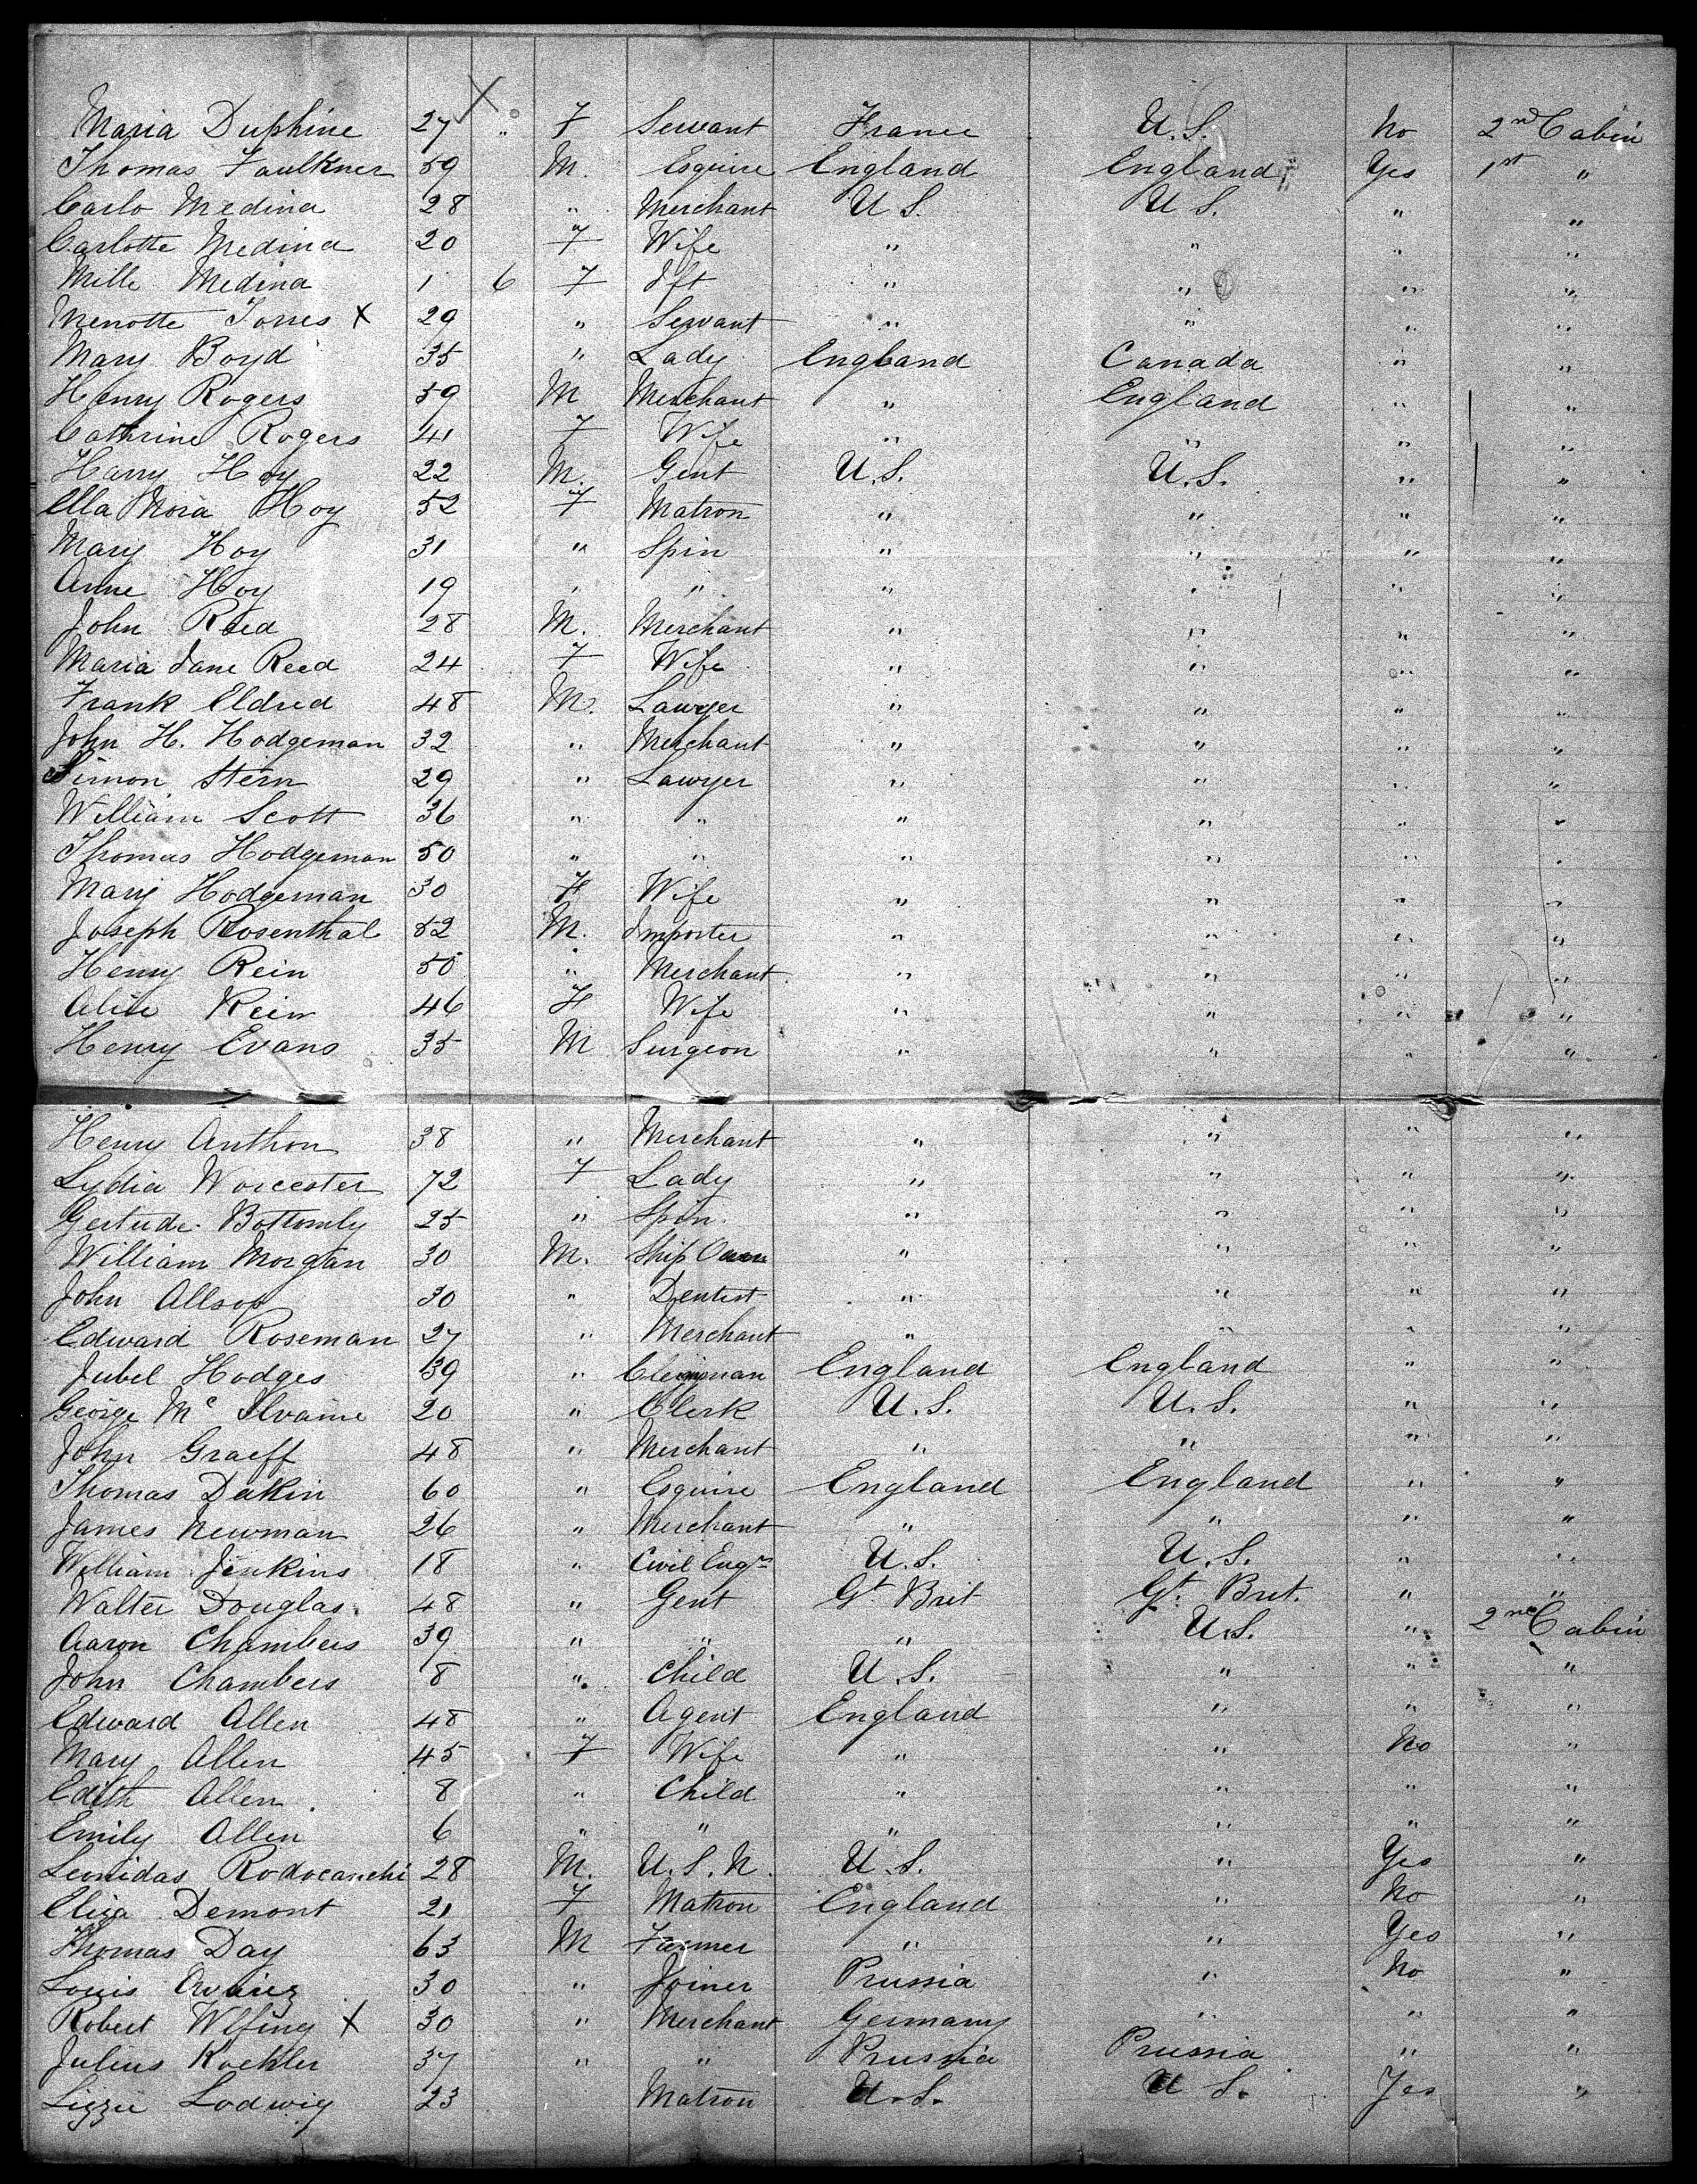 X
Maria Duphine 27 " F Servant France U.S. No 2nd Cabin
Thomas Faulkner 59 M. Esquire England England Yes 1st "
Carlo Medina 28 " Merchant U S. U S. " "
Carlotte Medina 20 F Wife " " " "
Mille Medina 1 6 F Ift " " " "
Menotte Torres X 29 " Servant " " " "
Mary Boyd 35 " Lady England Canada " "
Henry Rogers 59 M Merchant " England " "
Cathrine Rogers 41 F Wife " " " "
Harry Hoy 22 M. Gent U.S. U.S. " "
Ella Nora Hoy 52 F Matron " " " "
Mary Hoy 31 " Spin " " " "
Anne Hoy 19 " " " " " "
John Reed 28 M. Merchant " " " "
Maria Jane Reed 24 F Wife " " " "
Frank Eldred 48 M. Lawyer " " " "
John H. Hodgeman 32 " Merchant " " " "
Simon Stern 29 " Lawyer " " " "
William Scott 36 " " " " " "
Thomas Hodgeman 50 " " " " " "
Mary Hodgeman 30 F Wife " " " "
Joseph Rosenthal 52 M. Importer " " " "
Henry Rein 50 " Merchant " " " "
Alice Rein 46 F Wife " " " "
Henry Evans 35 M Surgeon " " " "
Henry Anthon 38 " Merchant " " " "
Lydia Worcester 72 F Lady " " " "
Gertude Bottomly 25 " Spin. " " " "
William Morgan 30 M. Ship Owner " " " "
John Allsop 30 " Dentist " " " "
Edward Roseman 27 " Merchant " " " "
Jubel Hodges 39 " Clergyman England England " "
George Mc Ilvaine 20 " Clerk U.S. U.S. " "
John Graeff 48 " Merchant " " " "
Thomas Dakin 60 " Esquire England England " "
James Newman 26 " Merchant " " " "
William Jenkins 18 " Civil Engr U.S. U.S. " "
Walter Douglas 48 " Gent Gt Brit Gt. Brit. " "
Aaron Chambers 39 " " " U.S. " 2nd Cabin
John Chambers 8 " Child U.S. " " "
Edward Allen 48 " Agent England " " "
Mary Allen 45 F Wife " " No "
Edith Allen 8 " Child " " " "
Emily Allen 6 " " " " " "
Leonidas Rodocanchi 28 M. U.S.N. U.S. " Yes "
Eliza Demont 21 F Matron England " No "
Thomas Day 63 M Farmer " " Yes "
Louis 30 " Joiner Prussia " No "
Robert X 30 " Merchant Germany " " "
Julius Koehler 37 " " Prussia Prussia " "
Lizzie Lodwig 23 Matron U.S. U S. Yes "